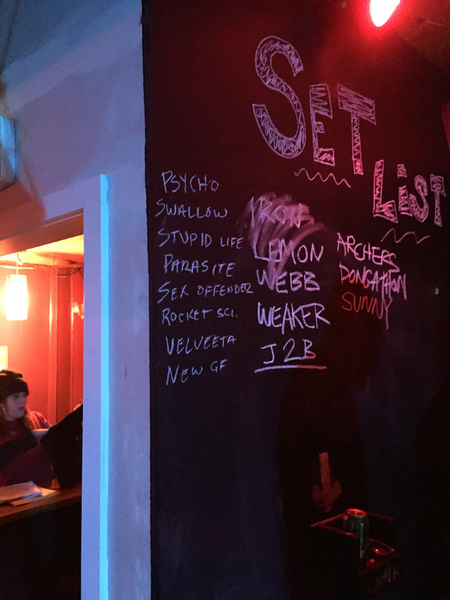 SET
LIST
PSYCHO
SWALLOW
STUPID LIFE
PARASITE
SEX OFFENDER
ROCKET SCI.
VELVEETA
NEW GF
IRON
LEMON
WEBB
WEAKER
J2B
ARCHERS
DONGATHON
SUNNY